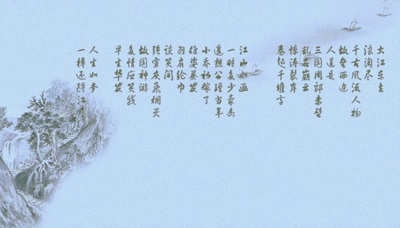 大江东去
浪淘尽
千古风流人物
故垒西边
人道是
三国周郎赤壁
乱石崩云
惊涛裂岸
卷起千堆雪
江山如画
一时多少豪杰
遥想公瑾当年
小乔初嫁了
雄姿英发
羽扇纶巾
谈笑间
强虏灰飞烟灭
故国神游
多情应笑我
早生华发
人生如梦
一樽还酹江月